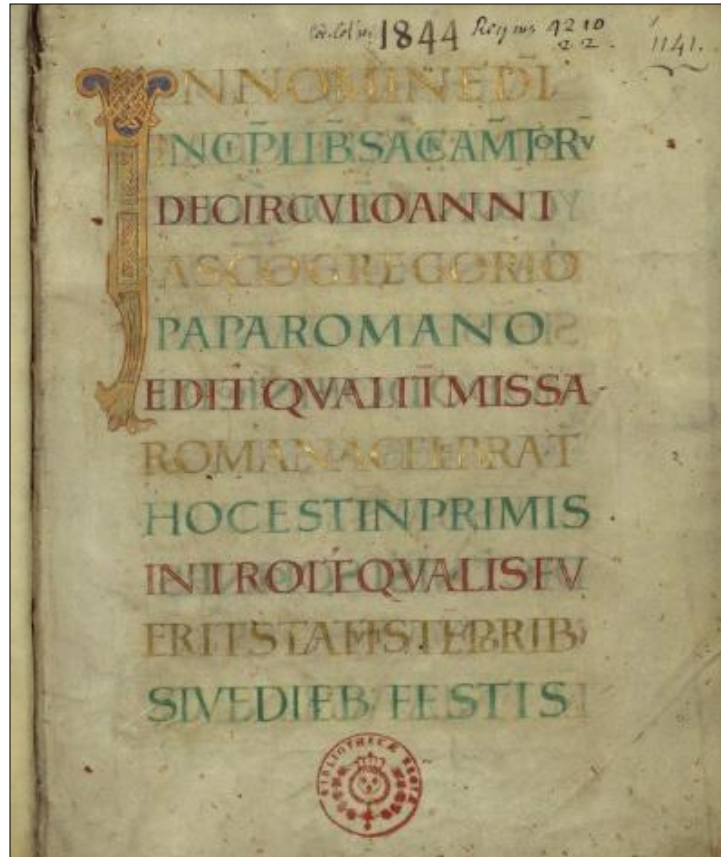 Cod. Colbert. 1844 Regius 4210
2 2.
1141.
IN NOMINE DN̄I
INCP̄ LIB SACRAMTORV
DE CIRCVLO ANNI
A SCO GREGORIO
PAPA ROMANO
EDIT QVALIT MISSA
ROMANA CELEBRAT
HOC EST IN PRIMIS
INTROIT QVALIS FV
ERIT STATIS TEPRIB
SIVE DIEB FESTIS
BIBLIOTHECÆ REGIÆ